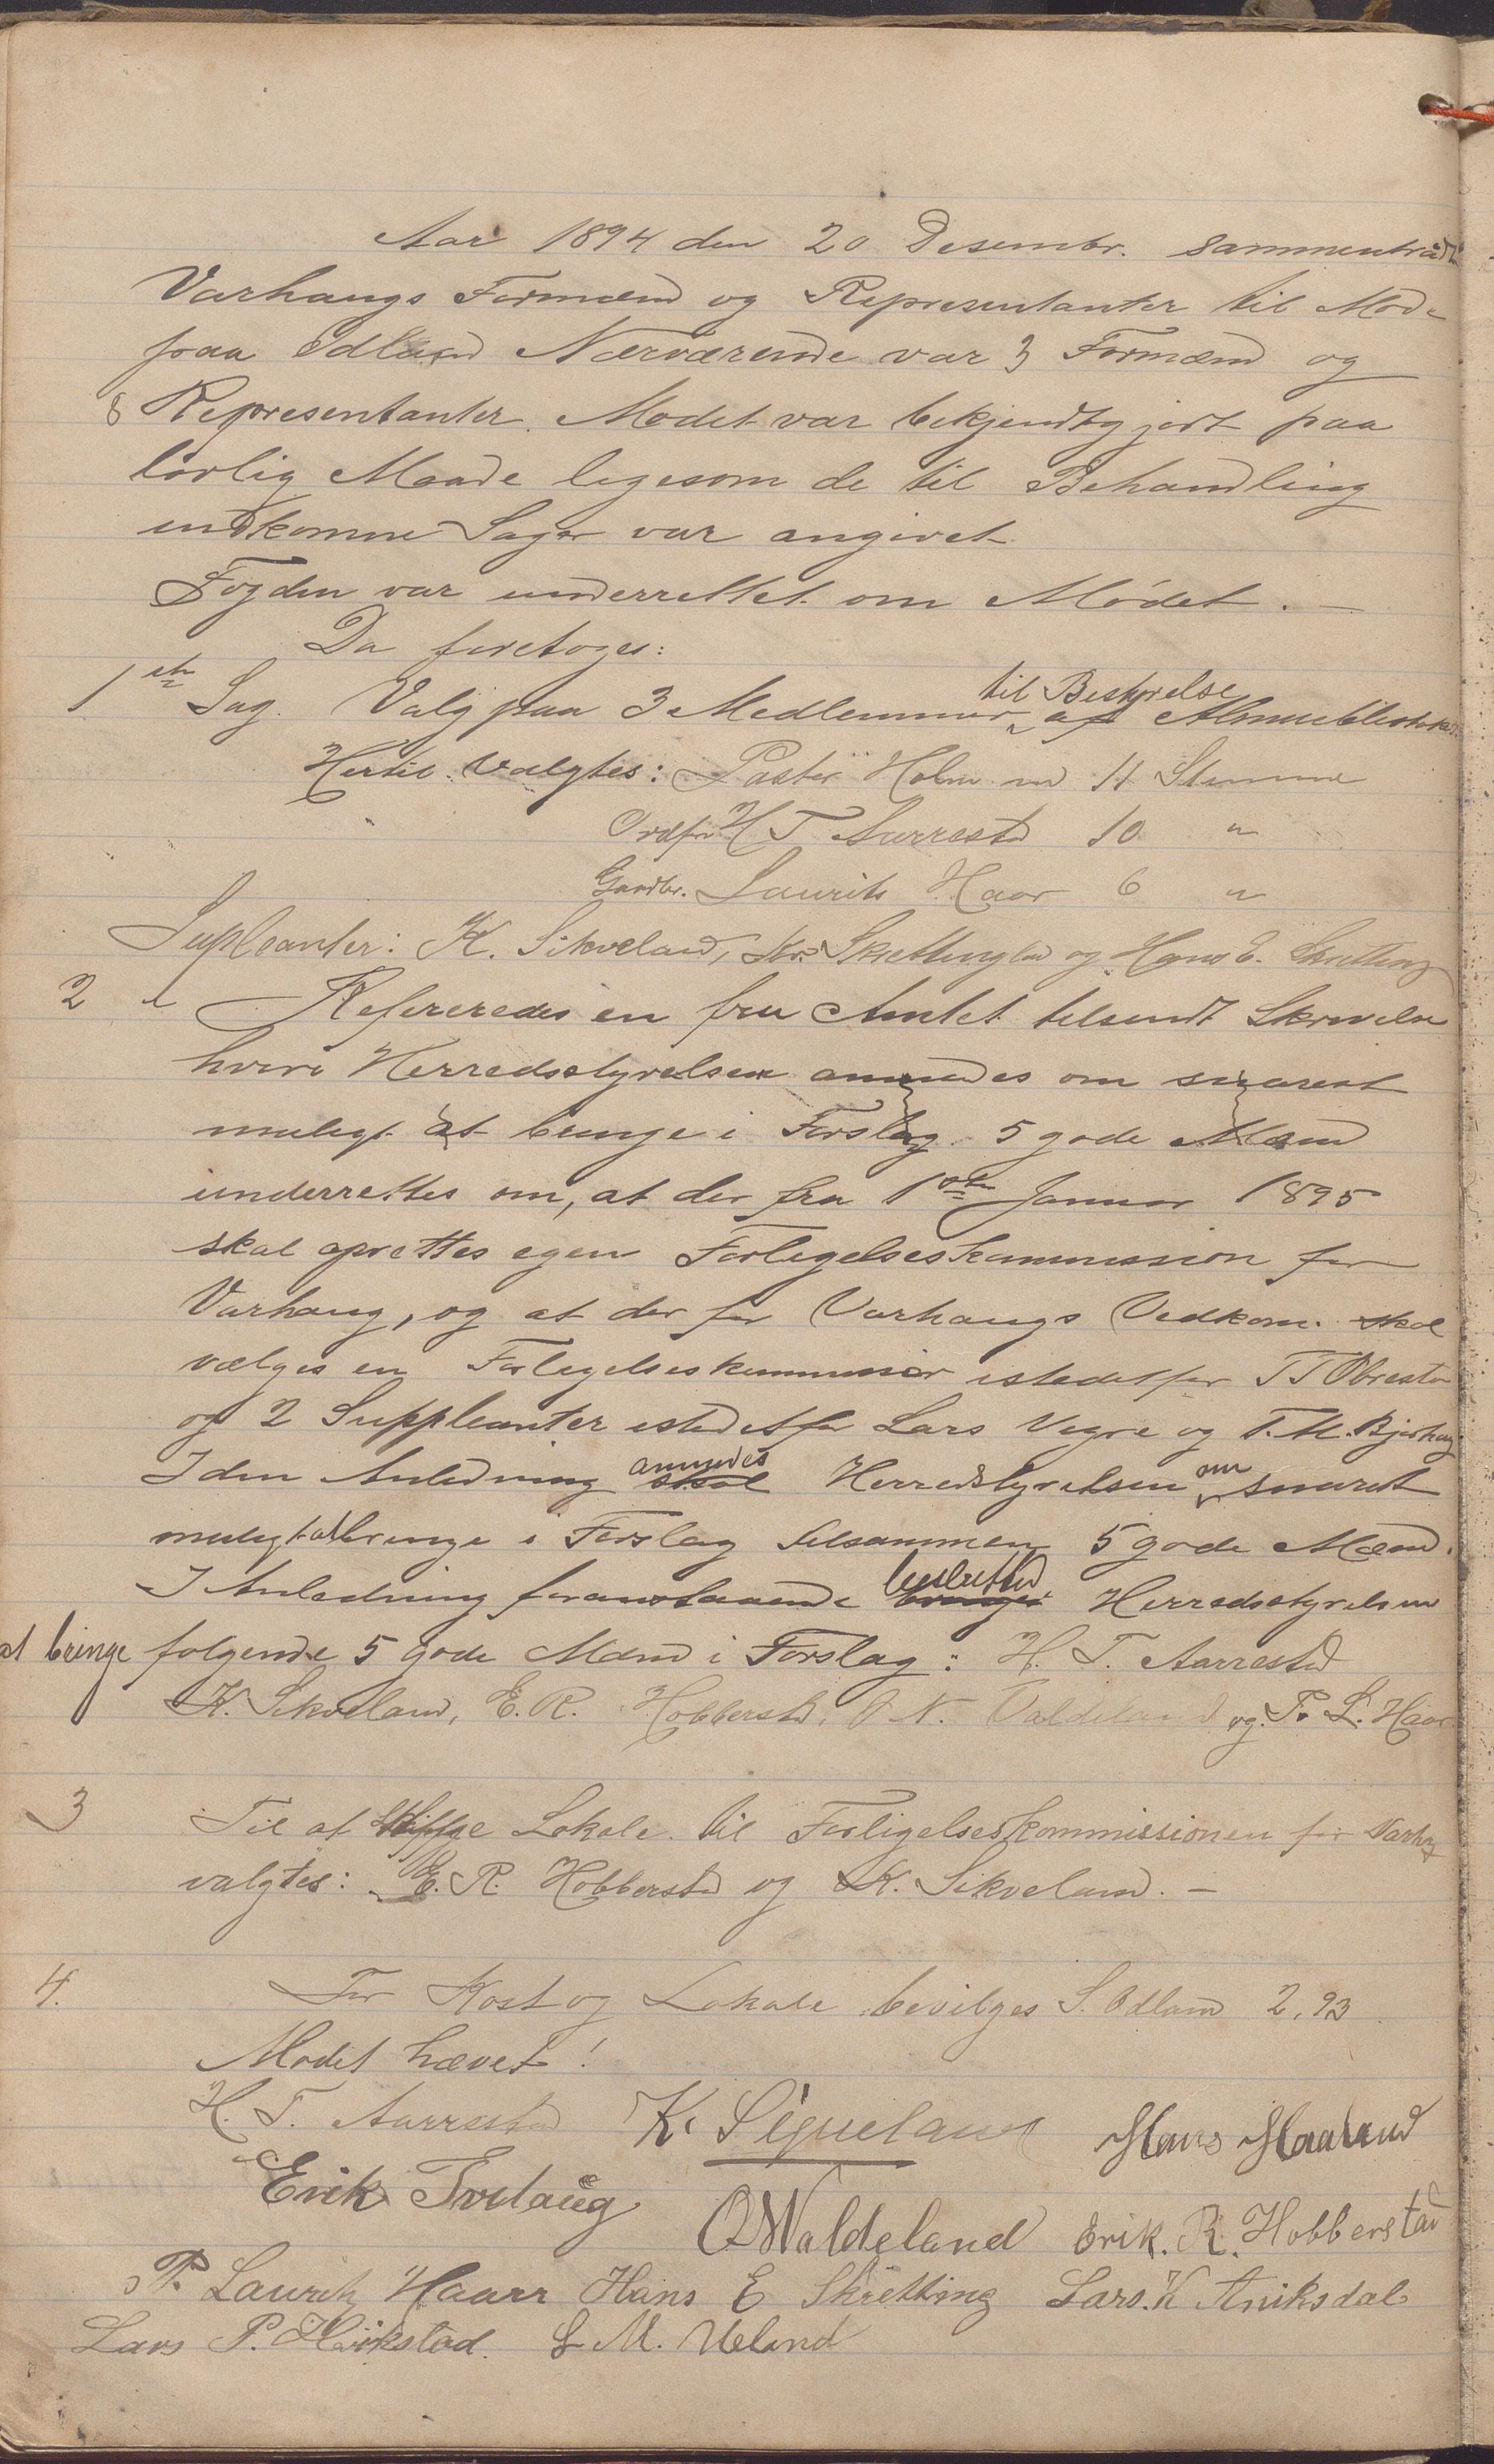 Aar 1894 den 20 Desembr. sammentraadte
Varhaugs Formænd og Representanter til Møde
paa Odland Nærværende var 3 Formænd og
8 Representanter. Mødet var bekjendtgjort paa
lovlig Maade ligesom de til Behandling
indkomne Sager var angivet
Fogden var underrettet om Mødet. —
Da foretoges:
1ste Sag. Valg paa 3 Medlemmer til Bestyrelse af
Hertil valgtes: Pastor Holm md 11 Stemme
Ordfr H T Aarrestd 10 "
Gaardbr. Laurits Haar 6 "
Supleanter: K. Sikveland, Kr. Skrettingland og Hans E. Skretting
2 " Refereredes en fra Amtet tilsendt Skrivelse
hvori Herredsstyrelsen anmodes om snarest
muligt at bringe i Forslag 5 gode Mænd
underrettes om, at der fra 1ste Januar 1895
skal oprettes egen Forligelseskommission for
Varhaug, og at der for Varhaugs Vedkom. skal
vælges en Forligelseskommissær istedetfor T T Obrestad
og 2 Suppleanter istedetfor Lars Vigre og T. M. Bjorhaug
I den Anledning skal anmodes Herredstyrelsen om snarest
muligt at bringe i Forslag tilsammen 5 gode Mænd.
I Anledning foranstaaende bringer beslutted Herredsstyrelsen
at bringe følgende 5 gode Mænd i Forslag: H. T. Aarrestad
K. Sikveland, E. R. Hobberstd, O N. Valdeland og P. L. Haar
3 Til at skaffe Lokale til Forligelseskommissionen for Varhg
valgtes: E. R. Hobberstd og K. Sikveland. —
4. For Kost og Lokale bevilges S. Odland 2,93
Mødet hævet!
H. T. Aarrestad K. Sigveland Hans Haaland
Erik Tvilaug O N Valdeland Erik. R. Hobberstad
P. Lauritz Haarr Hans E Skretting Lars. K Aniksdal
Lars P. Hirkstad. L M. Ueland